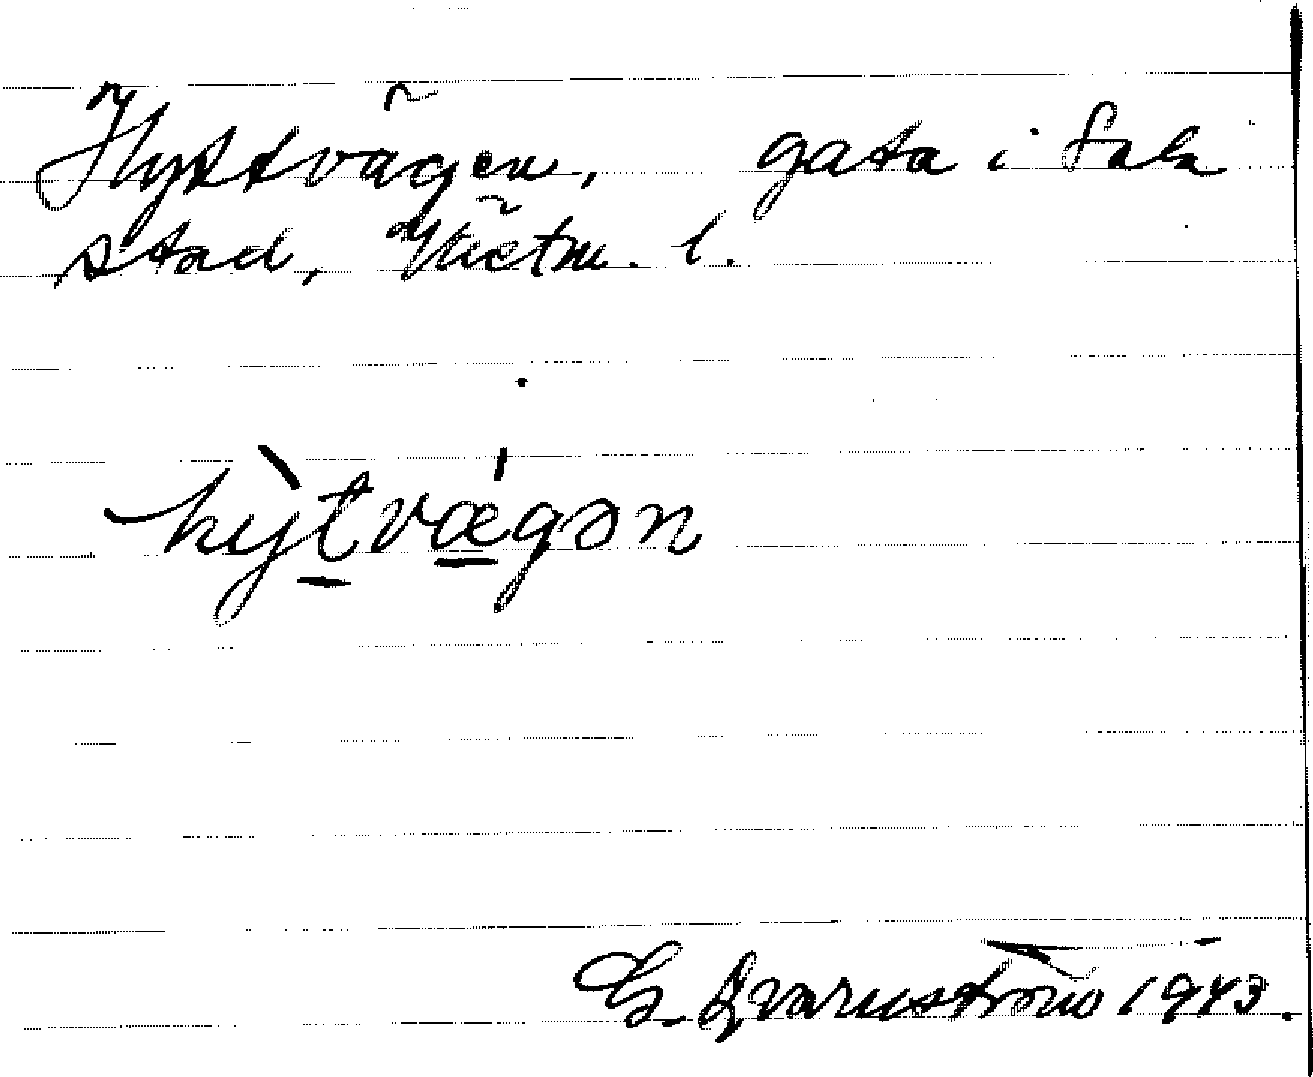 Hyttvägen, gata i Sala
stad, Västm. l.
hy̌tvǽgən
G. Qvarnström 1943.